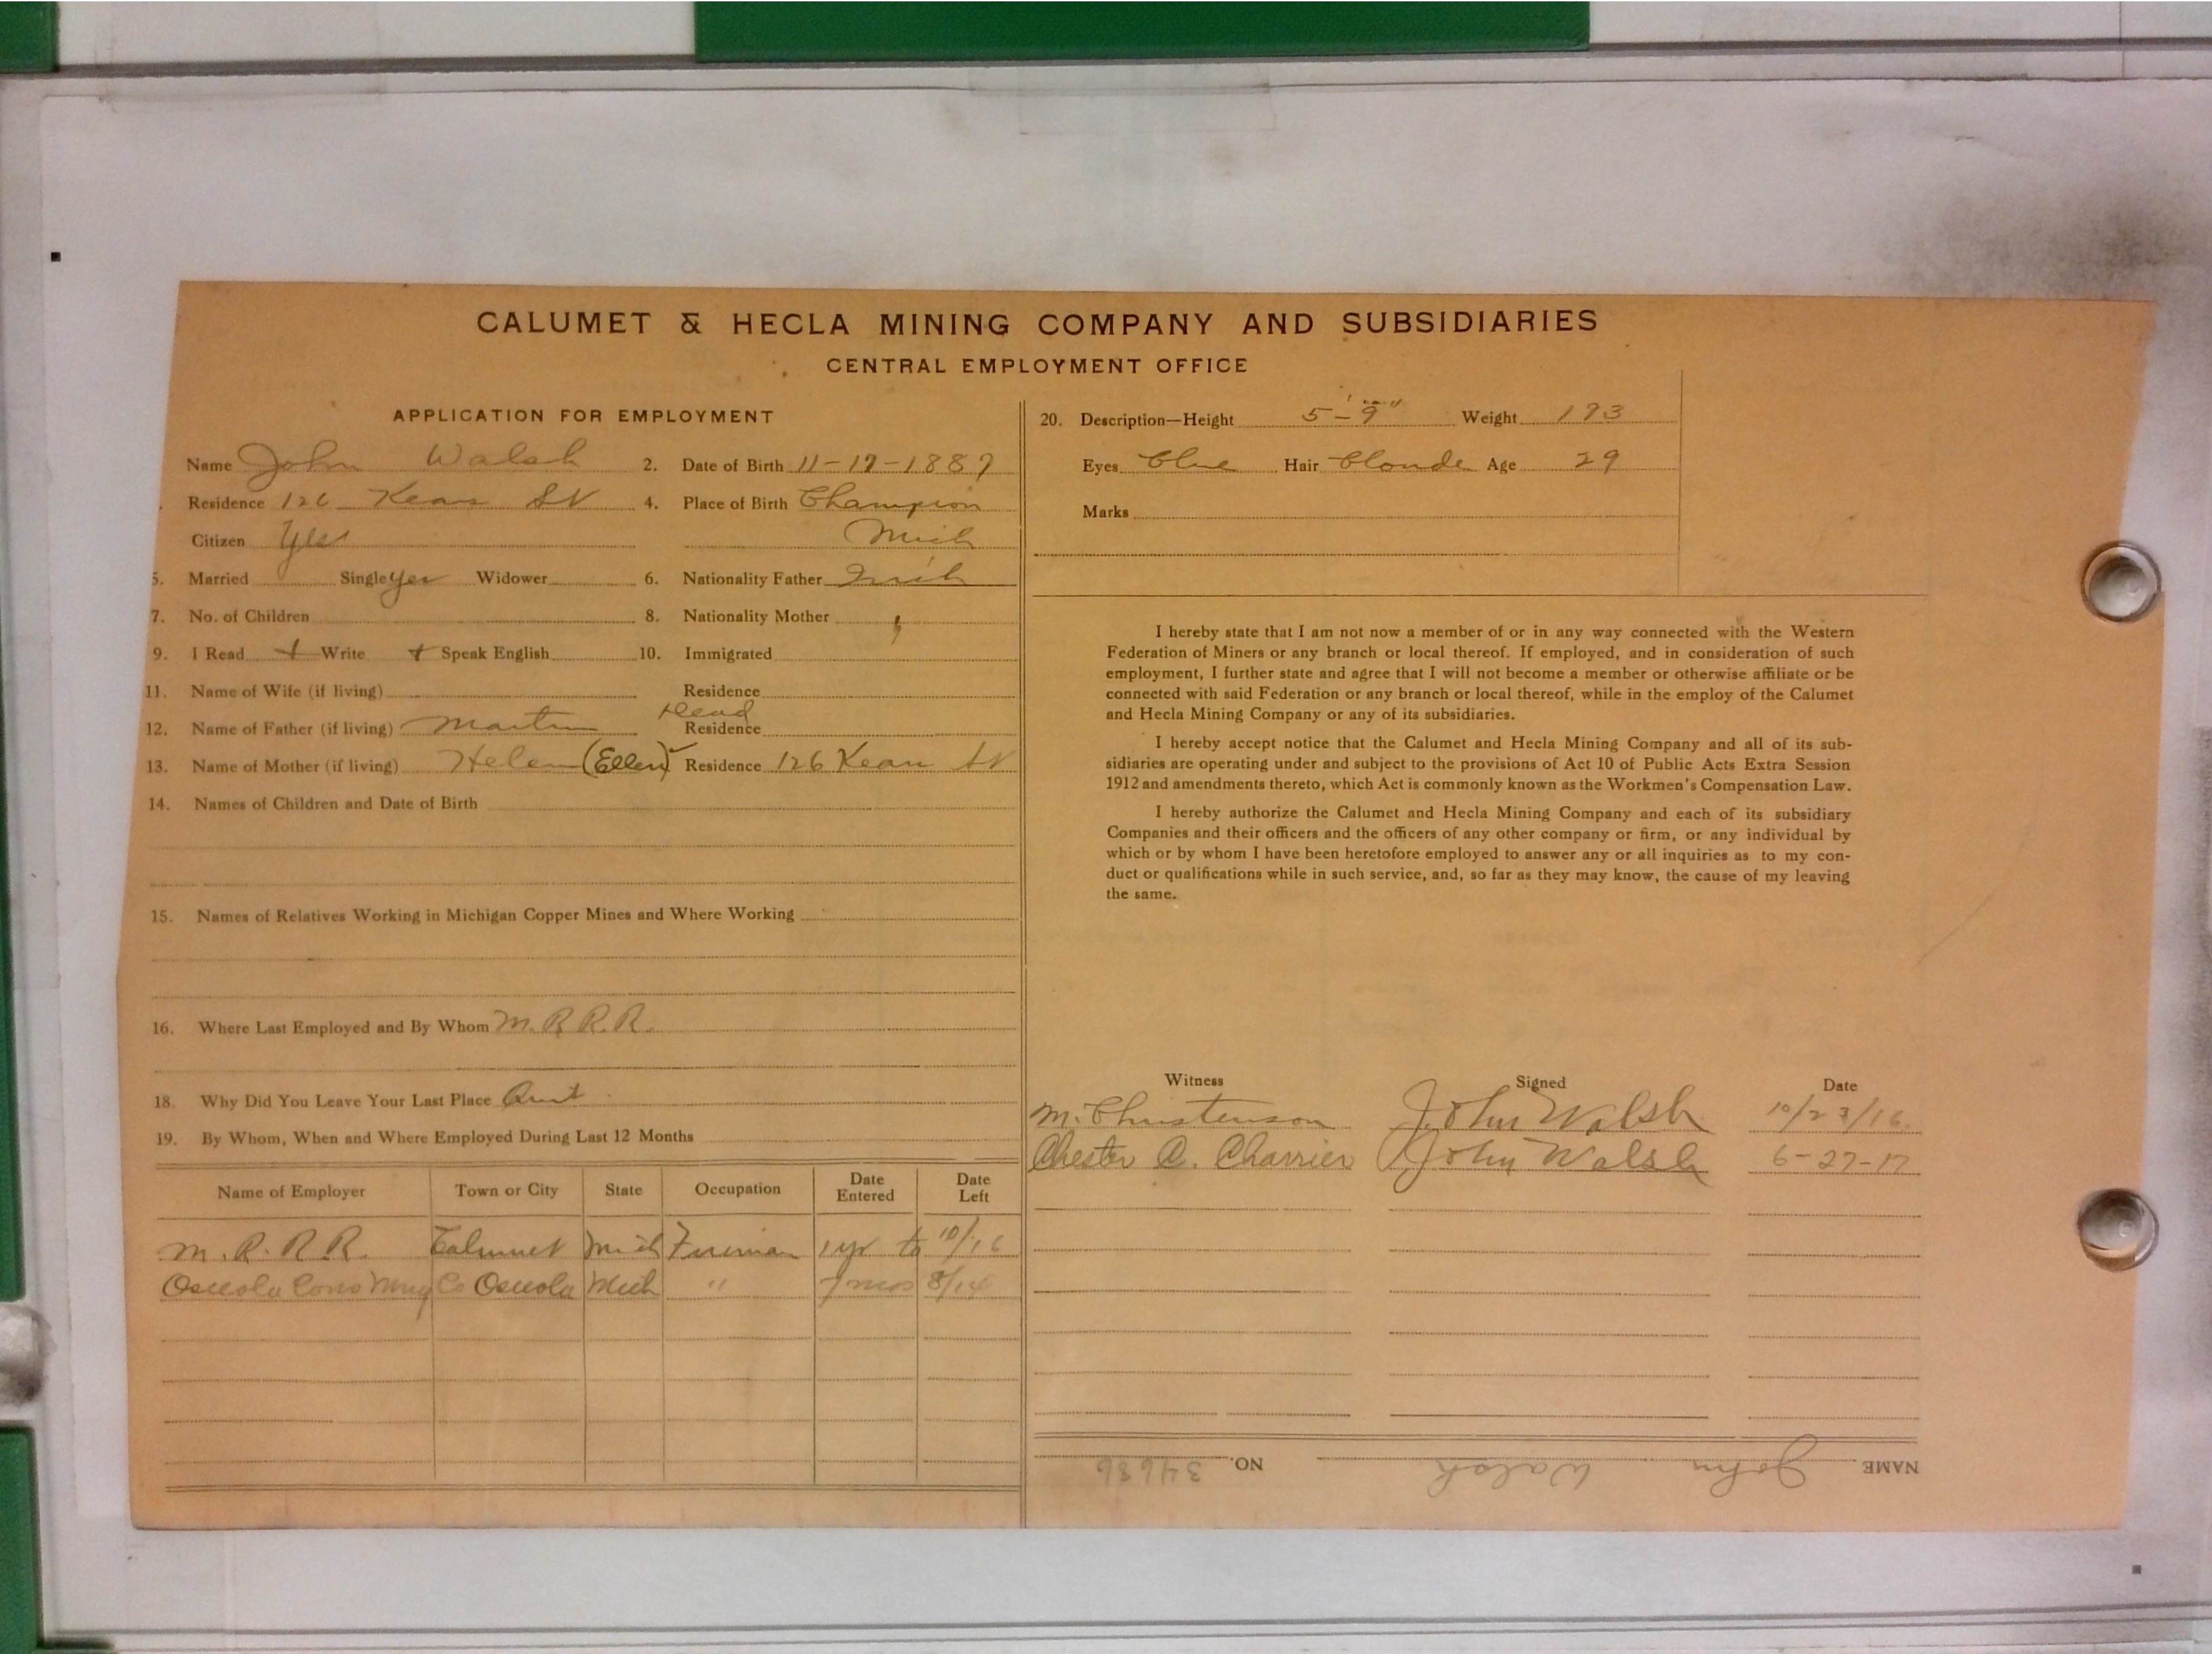 CALUMET & HECLA MINING COMPANY AND SUBSIDIARIES
CENTRAL EMPLOYMENT OFFICE
APPLICATION FOR EMPLOYMENT
Name John Walsh 2. Date of Birth 11-17-1887
Residence 126 Kear St 4. Place of Birth Champion
Citizen Yes Mich
5. Married Single yes Widower 6. Nationality Father Irish
7. No. of Children 8. Nationality Mother "
9. I Read + Write + Speak English 10. Immigrated
11. Name of Wife (if living) Residence
12. Name of Father (if living) Martin Dead Residence
13. Name of Mother (if living) Helen (Ellen) Residence 126 Kear St
14. Names of Children and Date of Birth
15. Names of Relatives Working in Michigan Copper Mines and Where Working
16. Where Last Employed and By Whom M. R R. R.
18. Why Did You Leave Your Last Place Quit
19. By Whom, When and Where Employed During Last 12 Months
Name of Employer Town or City State Occupation Date Entered Date Left
M. R. R R. Calumet Mich Fireman 1 yr to 10/16
Osceola Cons Mng Co Osceola Mich " 7 mos 8/14
20. Description—Height 5'-9" Weight 193
Eyes blue Hair blonde Age 29
Marks
I hereby state that I am not now a member of or in any way connected with the Western
Federation of Miners or any branch or local thereof. If employed, and in consideration of such
employment, I further state and agree that I will not become a member or otherwise affiliate or be
connected with said Federation or any branch or local thereof, while in the employ of the Calumet
and Hecla Mining Company or any of its subsidiaries.
I hereby accept notice that the Calumet and Hecla Mining Company and all of its sub-
sidiaries are operating under and subject to the provisions of Act 10 of Public Acts Extra Session
1912 and amendments thereto, which Act is commonly known as the Workmen's Compensation Law.
I hereby authorize the Calumet and Hecla Mining Company and each of its subsidiary
Companies and their officers and the officers of any other company or firm, or any individual by
which or by whom I have been heretofore employed to answer any or all inquiries as to my con-
duct or qualifications while in such service, and, so far as they may know, the cause of my leaving
the same.
Witness Signed Date
M. Christenson John Walsh 10/23/16
Chester C. Charrier John Walsh 6-27-17
NAME John Walsh NO. 34686